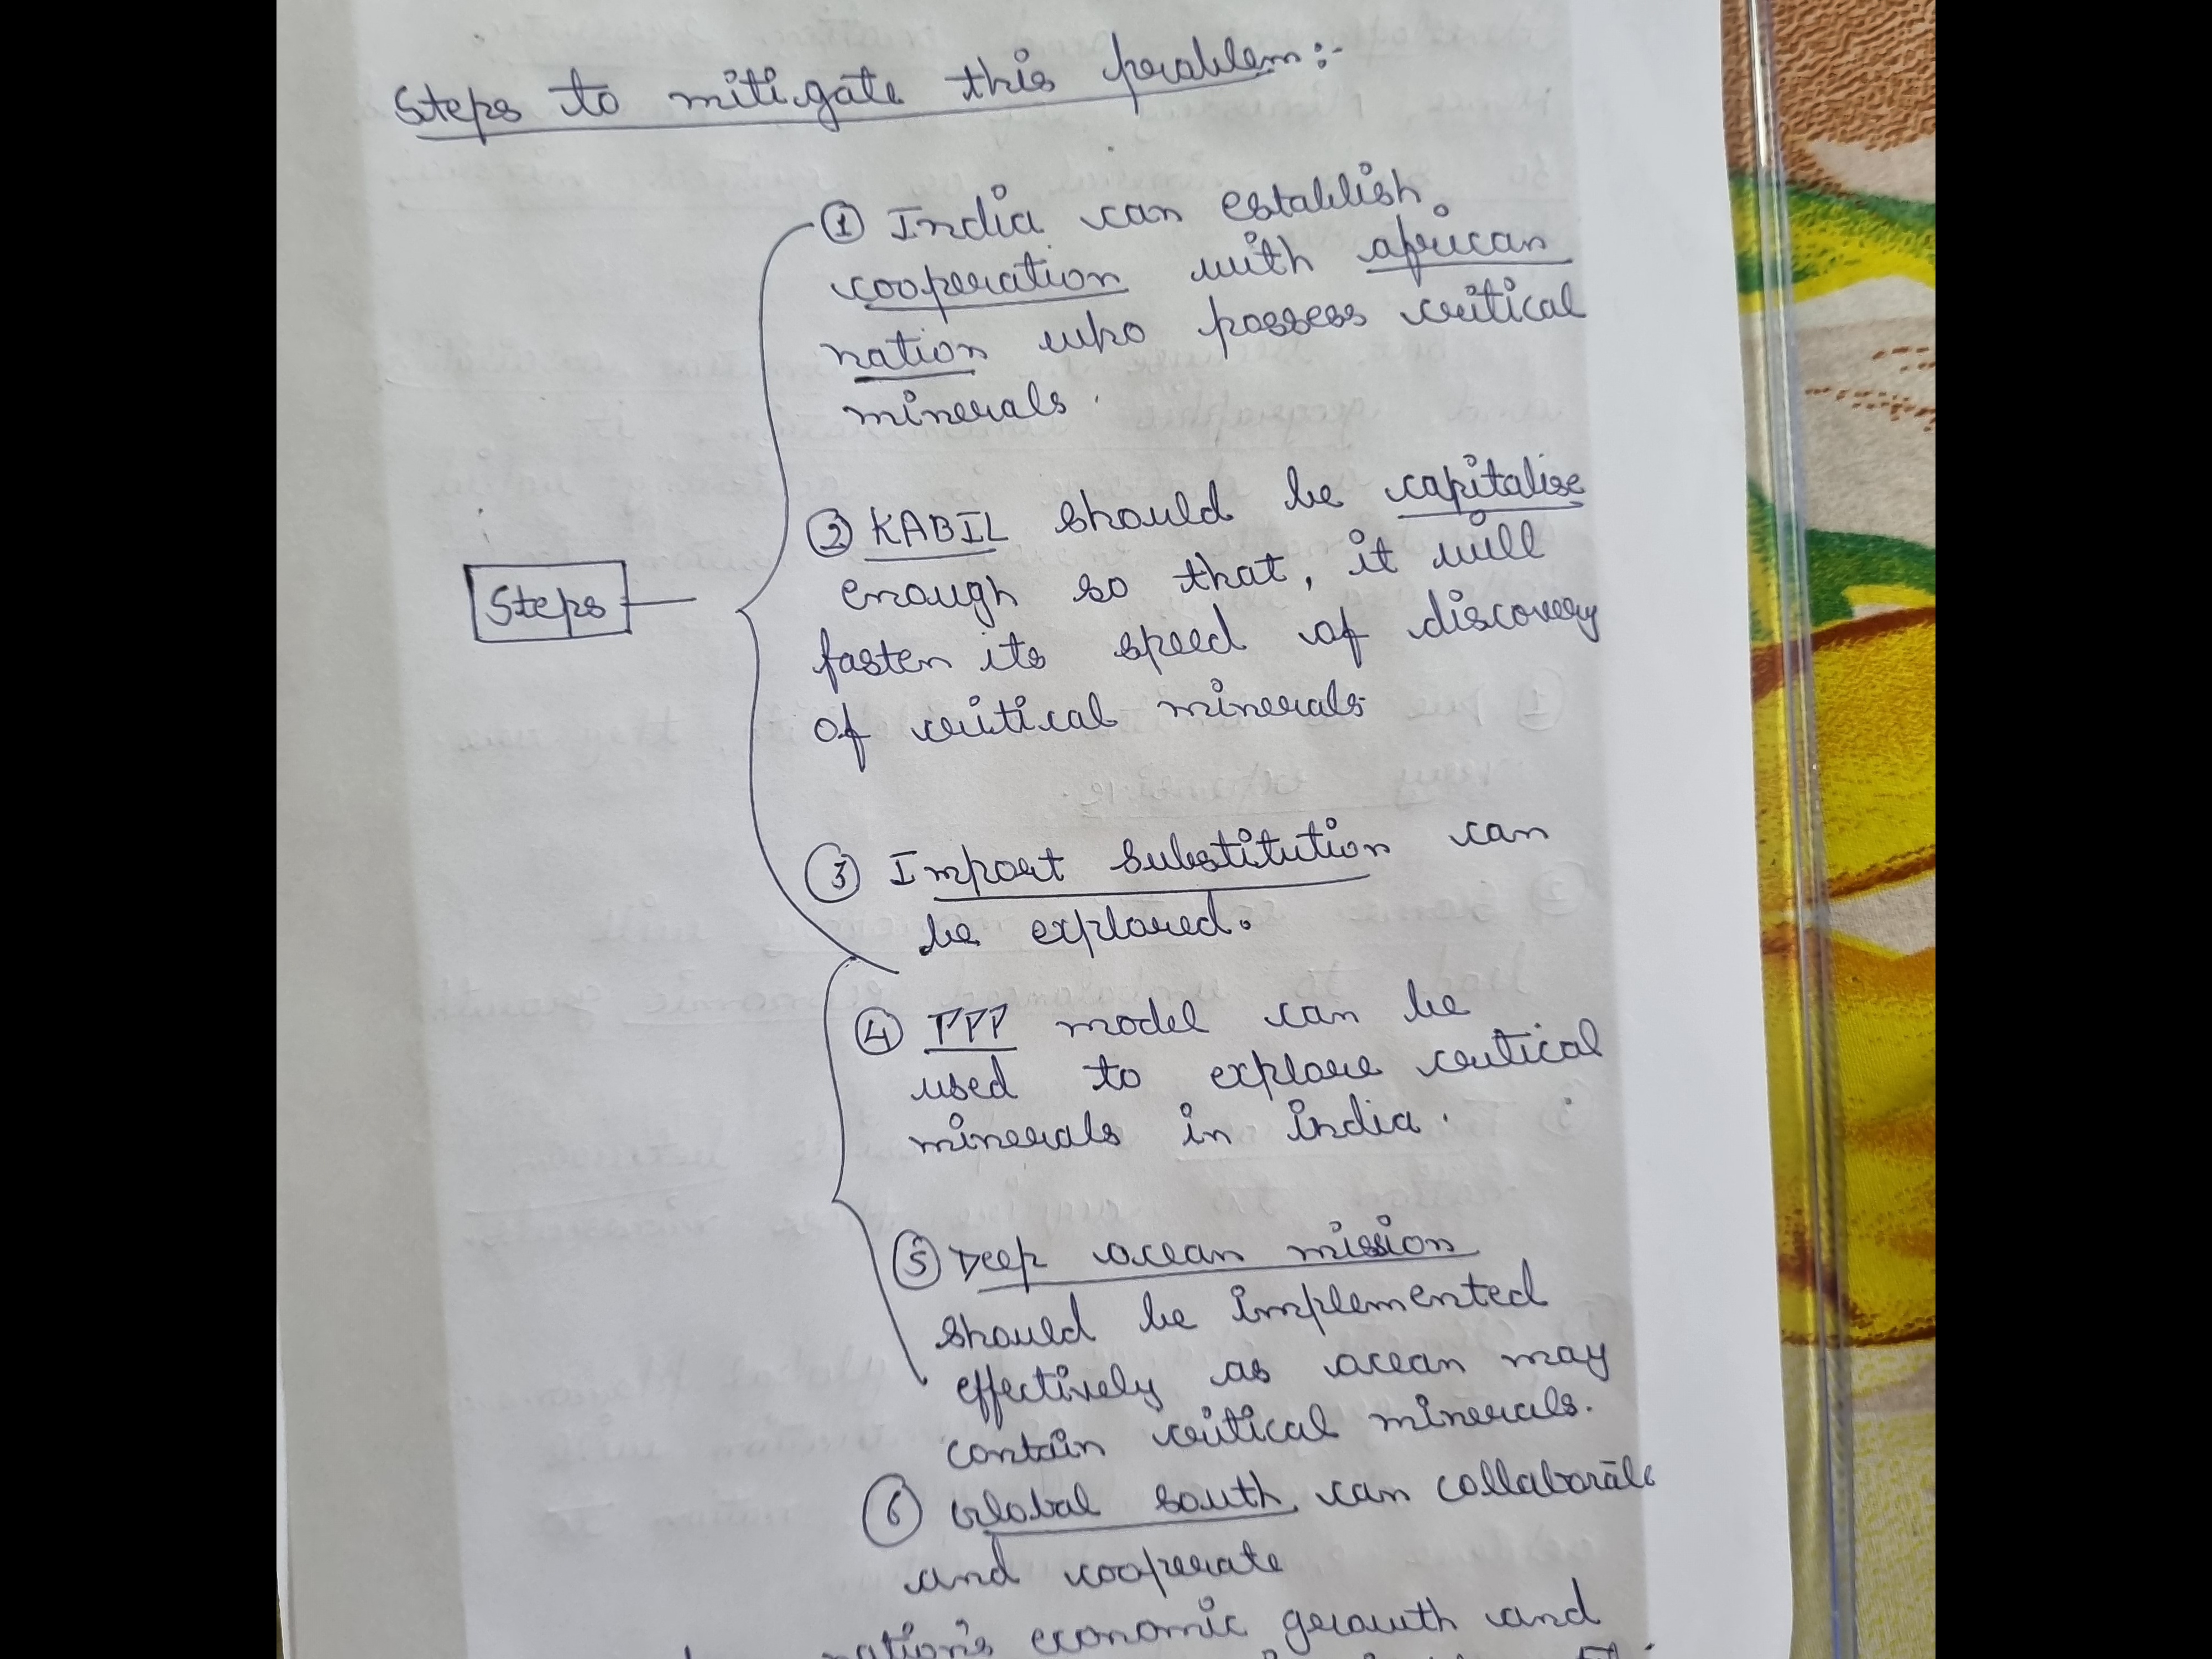 Steps to mitigate this problem:-
① India can establish.
cooperation with african
nation who possess critical
minerals.
② KABIL should be capitalise
enough so that, it will
Steps
fasten its speed of discovery
of critical minerals
③ Import substitution can
be explored.
④ PPP model can be
used to explore critical
minerals in india.
⑤ Deep ocean mission
should be implemented
effectively as ocean may
contain critical minerals.
⑥ Global south can collaborate
and cooperate
nation's economic growth and